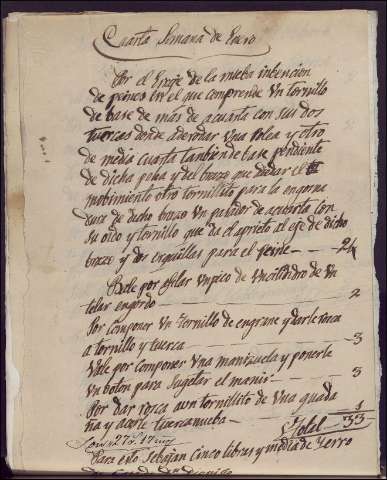 Cuarta Semana de Enero
Por el Ereje de la nueba intencion
de peines en el que comprende Un tornillo
de base de más de acuarta con sus dos
tuercas donde aderonar Una polea y otro
de media cuarta tambien de base pendiente
de dicha polea y del brazo que dadar el
mobimiento otro tornillito para la engorna
dura de dicho brazo Un palador de acuarta con
su oido y tornillo que da el aprieto al eje de dicho
brazo y dos orquillas para el peine — 24
Vale por afilar Un pico de Un cilidro de Un
telar engordo — 2
Por Componer Un Tornillo de engrane y darle rosca
a tornillo y tuerca — 3
Vale por Componer Una manizuela y ponerle
Un boton para Sugetar el manir — 3
Por dar rosca aun tornillito de Una guada
ña y acerle tuerca nueba — 1
Total — 33
Para esto Sebajan Cinco libras y media de Yerro